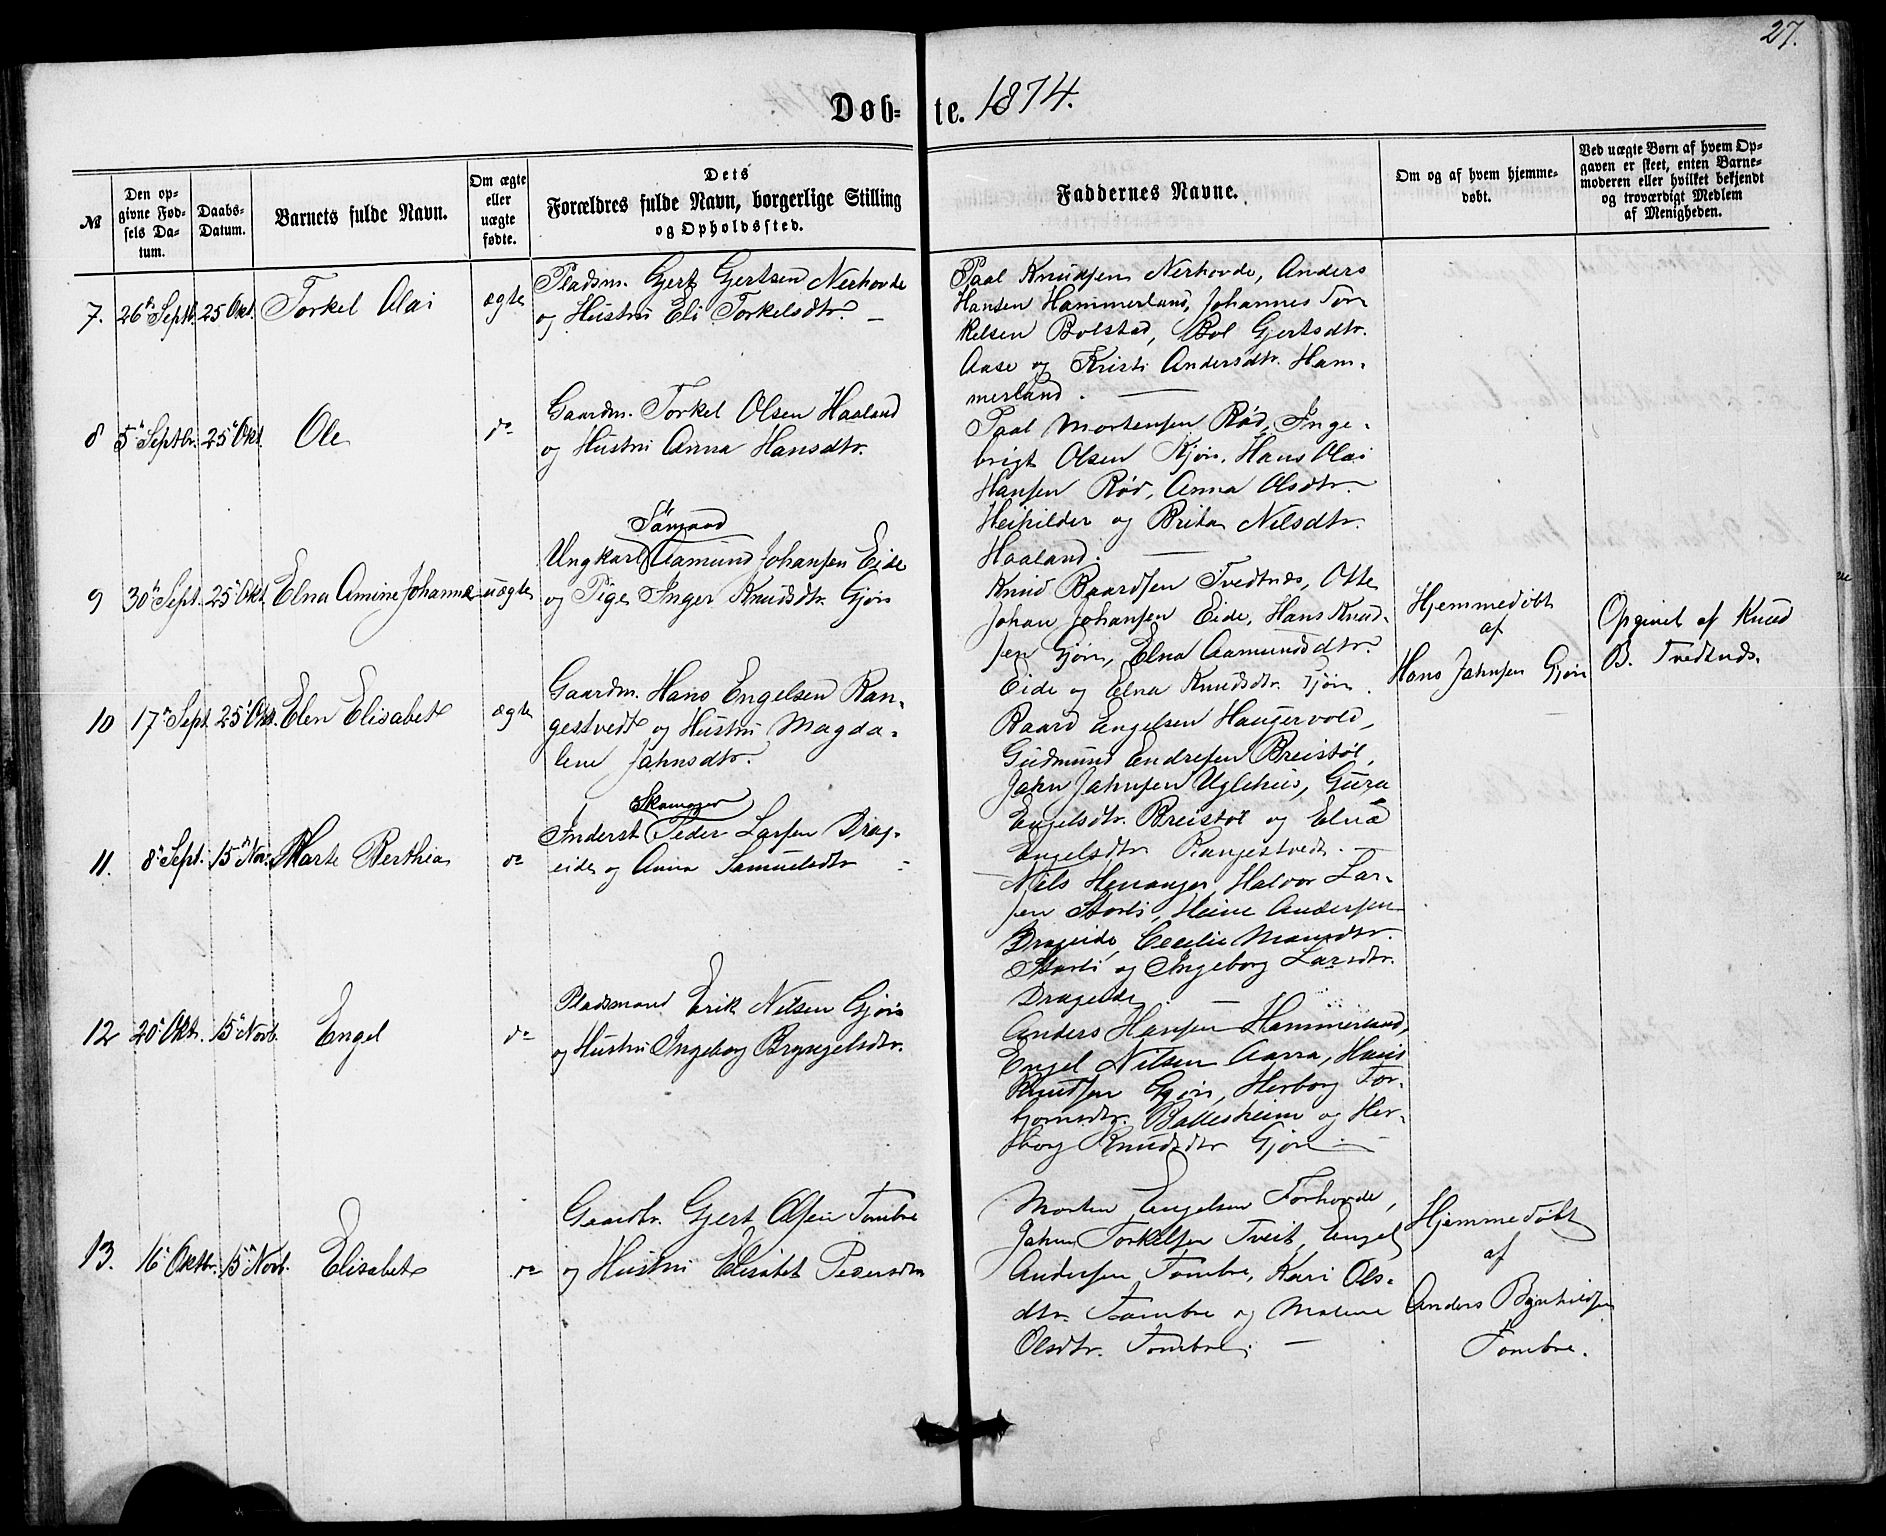 27.
Døb= te. 1874.
№
Den op-
givne Fød-
sels Da-
tum.
Daabs-
Datum.
Barnets fulde Navn.
Om ægte
eller
uægte
fødte.
Dets
Forældres fulde Navn, borgerlige Stilling
og Opholdssted.
Faddernes Navne.
Om og af hvem hjemme-
døbt.
Ved uægte Børn af hvem Op-
gaven er skeet, enten Barne-
moderen eller hvilket bekjendt
og troværdigt Medlem
af Menigheden.
7. 26 Septb. 25 Okt. Torkel Olai ægte
Pladsm. Gert Gertsen Nerhovde
og Hustru Eli Torkelsdtr. —
Paal Knudsen Nerhovde, Anders
Hansen Hammerland, Johannes Tor-
kelsen Bolstad, Bol Gjertsdtr.
Aase og Kristi Andersdtr. Ham-
merland. —
8 5 Septbr. 25 Okt. Ole do
Gaardm. Torkel Olsen Haaland
og Hustru Anna Hansdtr.
Paal Mortensen Rød, Inge-
brigt Olsen Kjøn, Hans Olai
Hansen Rød, Anna Olsdtr.
og Brita Nilsdtr.
Haaland. —
9 30 Sept. 25 Okt. Elna Amine Johanna uægte
Ungkarl Aamund Johansen Eide
og Pige Inger Knudsdtr. Gjøn
Knud Baardsen Tvedtnæs, Otte
Johan Johansen Eide, Hans Knud-
sen Gjøn, Elna Aamundsdtr.
Eide og Elna Knudsdtr. Gjøn.
Hjemmedøbt
af
Hans Jahnsen Gjøn
Opgivet af Knud
B. Tvedtnæs.
10 17 Sept. 25 Okt. Elen Elisabet ægte
Gaardm. Hans Engelsen Ran-
gestvedt og Hustru Magda-
lene Jahnsdtr.
Baard Engelsen Haugervold,
Gudmund Endresen Breistøl,
Jahn Jahnsen Uglehus, Guru
Engelsdtr. Breistøl og Elna
Engelsdtr Rangestvedt. —
11. 8 Sept. 15 Nov. Marte Berthea do
Skomager
Inderst Peder Larsen Drag-
eide og Anna Samuelsdtr
Nils Henanger, Halvor Lar-
sen Storli, Heine Andersen
Drageide, Cecilie Monsdtr.
Storli og Ingeborg Larsdtr.
Drageide. —
12 20 Okt. 15 Novb. Engel do
Pladsmand Erik Nilsen Gjøn
og Hustru Ingeborg Bryngelsdtr.
Anders Hansen Hammerland,
Engel Nilsen Aarra, Hans
Knudsen Gjøn, Herborg Tor-
bjørnsdtr. Ballesheim og Her-
borg Knudsdtr Gjøn —
13. 16 Oktbr. 15 Novb. Elisabet do
Gaardbr. Gjert Olsen Tombre
og Hustru Elisabet Pedersdtr
Morten Engelsen Forhovde,
Jahn Torkelsen Tveit, Engel
Andersen Tombre, Kari Ols-
dtr. Tombre og Malene
Olsdtr. Tombre. —
Hjemmedøbt
af
Anders
Tombre.